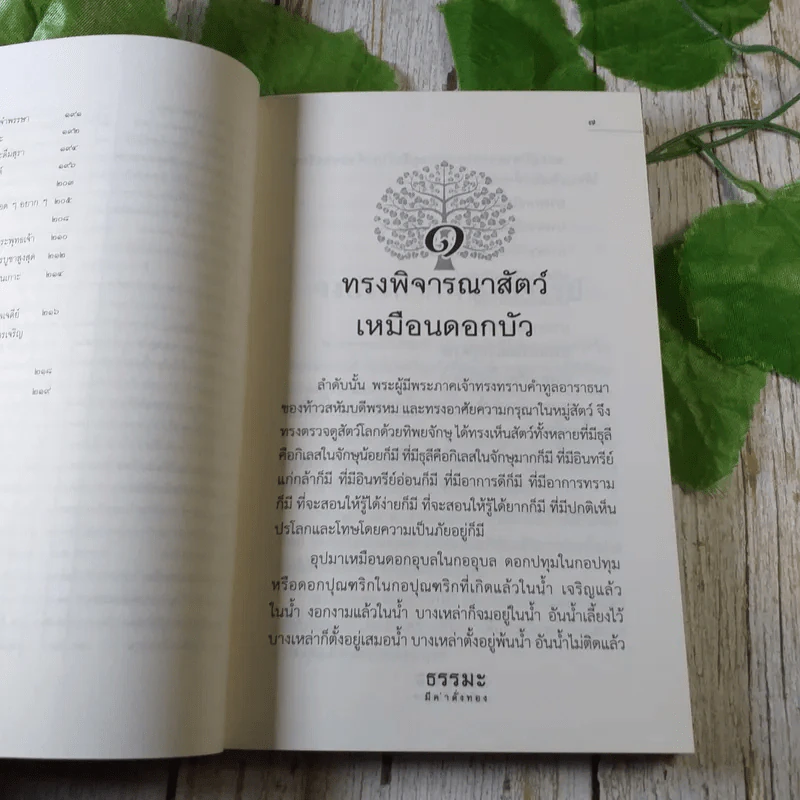 ๑๙๑
๑๙๒
๑๙๔
๑๙๖
๒๐๓
๒๐๕
๒๐๘
ระพุทธเจ้า ๒๑๐
รบูชาสูงสุด ๒๑๒
๒๑๔
๒๑๖
รเจริญ
๒๑๘
๒๑๙
๗
๑
ทรงพิจารณาสัตว์
เหมือนดอกบัว
ลำดับนั้น พระผู้มีพระภาคเจ้าทรงทราบคำทูลอาราธนา
ของท้าวสหัมบดีพรหม และทรงอาศัยความกรุณาในหมู่สัตว์ จึง
ทรงตรวจดูสัตว์โลกด้วยทิพยจักษุ ได้ทรงเห็นสัตว์ทั้งหลายที่มีธุลี
คือกิเลสในจักษุน้อยก็มี ที่มีธุลีคือกิเลสในจักษุมากก็มี ที่มีอินทรีย์
แก่กล้าก็มี ที่มีอินทรีย์อ่อนก็มี ที่มีอาการดีก็มี ที่มีอาการทราม
ก็มี ที่จะสอนให้รู้ได้ง่ายก็มี ที่จะสอนให้รู้ได้ยากก็มี ที่มีปกติเห็น
ปรโลกและโทษโดยความเป็นภัยอยู่ก็มี
อุปมาเหมือนดอกอุบลในกออุบล ดอกปทุมในกอปทุม
หรือดอกปุณฑริกในกอปุณฑริกที่เกิดแล้วในน้ำ เจริญแล้ว
ในน้ำ งอกงามแล้วในน้ำ บางเหล่าก็จมอยู่ในน้ำ อันน้ำเลี้ยงไว้
บางเหล่าก็ตั้งอยู่เสมอน้ำ บางเหล่าตั้งอยู่พ้นน้ำ อันน้ำไม่ติดแล้ว
ธรรมะ
มีค่าดั่งทอง